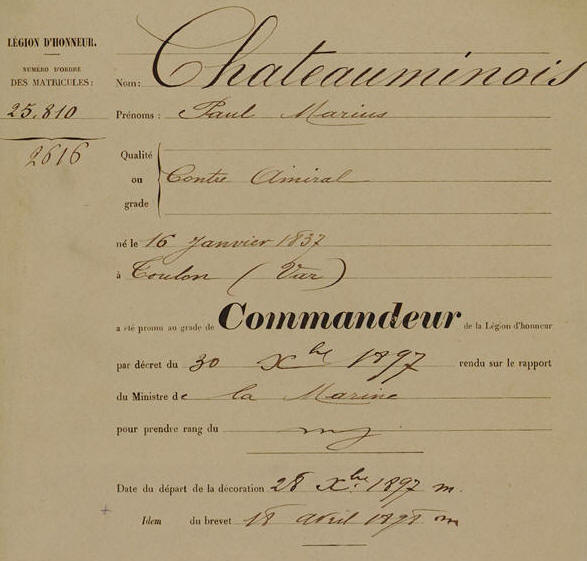 LÉGION D'HONNEUR.
NUMÉRO D'ORDRE
DES MATRICULES:
25.810
2616
Nom: Chateauminois
Prénoms: Paul Marius
Qualité
ou
grade
Contre Amiral
né le 16 Janvier 1837
à Toulon (Var)
a été promu au grade de Commandeur de la Légion d'honneur
par décret du 30 Xbre 1897 rendu sur le rapport
du Ministre de la Marine
pour prendre rang du
Date du départ de la décoration 28 Xbre 1897 m.
Idem du brevet 18 avril 1898 m